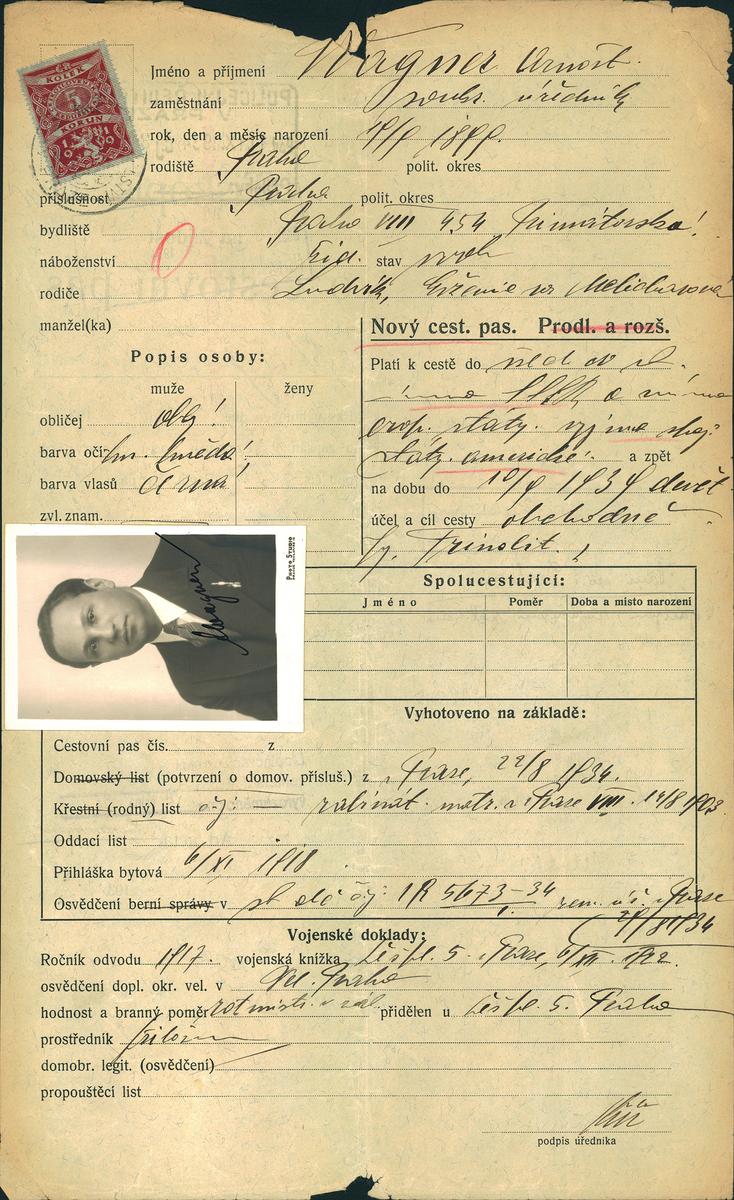 KOLEK
5
KORUN
1919
Jméno a příjmení Wagner Arnošt.
zaměstnání soukr. úředník
rok, den a měsíc narození 1899.
rodiště Praha polit. okres
příslušnost Praha polit. okres
bydliště Praha VIII 454 Primátorská
náboženství žid. stav svob
rodiče Ludvík,
manžel(ka)
Nový cest. pas. Prodl. a rozš.
Popis osoby:
muže ženy
obličej obl!
barva očí
barva vlasů černá
zvl. znam.
Platí k cestě do
mimo SSSR a mimo
evrop. státy. vyjma spoj.
státy. americké a zpět
na dobu do 10/9 1939
účel a cíl cesty obchodně
Wagner
PHOTO STUDIO
Spolucestující:
Jméno Poměr Doba a místo narození
Vyhotoveno na základě:
Cestovní pas čís. z
Domovský list (potvrzení o domov. přísluš.) z Praze, 22/8 1934.
Křestní (rodný) list čj: — rabinát. matr. v Praze VIII. 14/8 1903
Oddací list
Přihláška bytová 6/XI 1918
Osvědčení berní správy v čj: 1R 5673-34 Praze
27/8 1934
Vojenské doklady:
Ročník odvodu 1917. vojenská knížka čs. pl. 5. Praze, 6/XII. 1922.
osvědčení dopl. okr. vel. v Vel. Praha
hodnost a branný poměr rotmistr. v zál. přidělen u čs. pl. 5. Praha
prostředník
domobr. legit. (osvědčení)
propouštěcí list
podpis úředníka